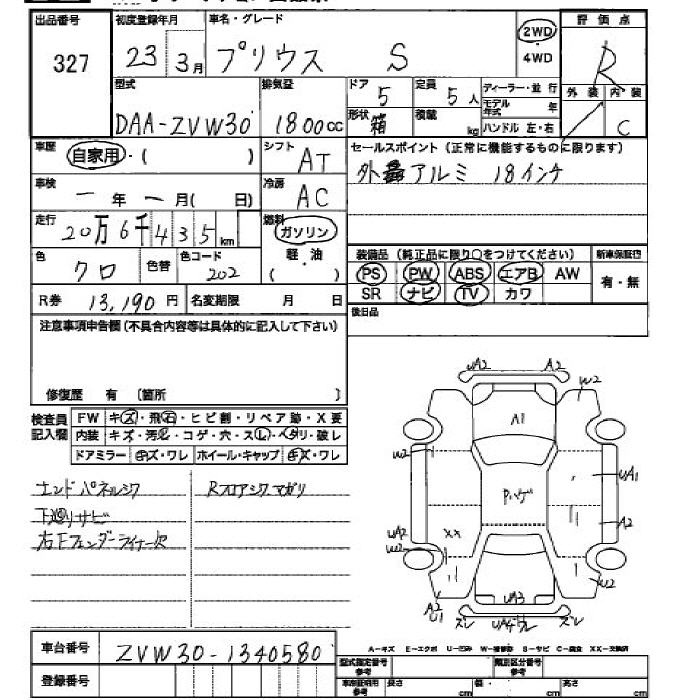 出品番号 初度登録年月 車名・グレード 評価点
327 23年 3月 プリウス S 2WD・4WD R
型式 排気量 ドア 定員 ディーラー・並行 外装 内装
DAA-ZVW30 1800cc 5 5人 モデル年式 年
形状 箱 積載 kg ハンドル 左・右 C
車歴 自家用・( ) シフト AT セールスポイント(正常に機能するものに限ります)
外品アルミ 18インチ
車検 ー年ー月( 日) 冷房 AC
走行 20万6千435km 燃料 ガソリン 軽・油 ( )
装備品 (純正品に限り○をつけてください) 新車保証書
色 クロ 色替 色コード 202 PS PW ABS エアB AW 有・無
SR ナビ TV カワ
R券 13,190円 名変期限 月 日 後日品
注意事項申告欄(不具合内容等は具体的に記入して下さい)
修復歴 有 〔箇所 〕
検査員記入欄 FW キズ・飛石・ヒビ割・リペア跡・X要
内装 キズ・汚れ・コゲ・穴・スレ・ヘタリ・破レ
ドアミラー キズ・ワレ ホイール・キャップ キズ・ワレ
エンドパネルシワ Rフロアシワマガリ
下廻りサビ
右Fフェンダーライナー欠
UA2 A2
W2
A1
W2
UA1
Pハゲ
A2
UA2 XX
W2
W2
UA3
A2 U1 ズレ UA4ワレ ズレ
A-キズ E-エクボ U-凹み W-補修跡 S-サビ C-腐食 XX-交換済
車台番号 ZVW30-1340580
型式指定番号 参考 類別区分番号 参考
登録番号 参考 長さ cm 幅 cm 高さ cm